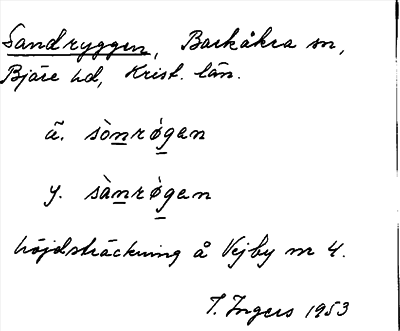 Sandryggen, Barkåkra sn,
Bjäre hd, Krist. län.
ä. sònrǿgen
y. sànrǿgen
höjdsträckning å Vejby nr 4.
I. Ingers 1953